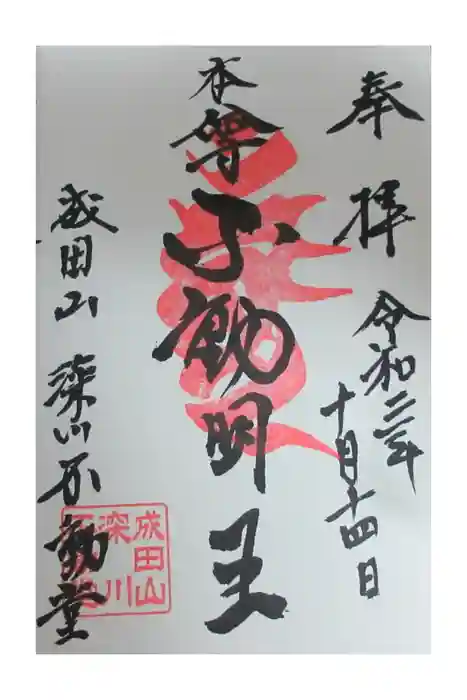 奉拝
令和二年
十月十四日
本尊
不動明王
成田山 深川不動堂
成田山
深川